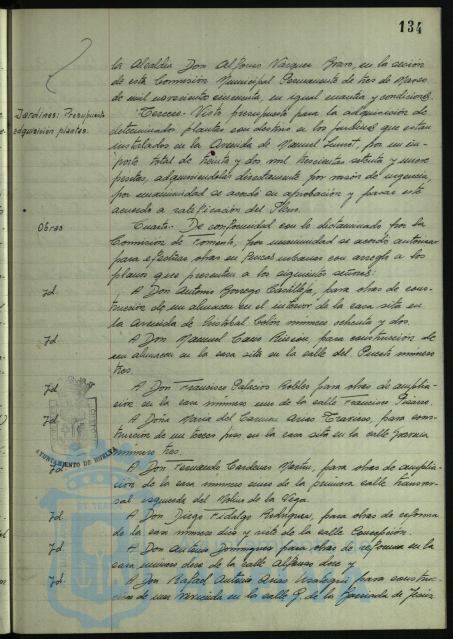 134
la Alcaldía Don Alfonso Vázquez Bravo, en la sesión
de esta Comisión Municipal Permanente de tres de Marzo
de mil novecientos cincuenta, en igual cuantía y condiciones.
Jardines: Presupuesto
adquisición plantas.
Tercero: Visto presupuesto para la adquisición de
determinadas plantas con destino a los jardines que están
instalados en la Avenida de Manuel Siurot, por un im-
porte total de treinta y dos mil trescientas setenta y nueve
pesetas, adquiriéndolas directamente por razón de urgencia,
por unanimidad se acordó su aprobación y pasar este
acuerdo a ratificación del Pleno.
Obras
Cuarto: De conformidad con lo dictaminado por la
Comisión de Fomento, por unanimidad se acordó autorizar
para efectuar obras en fincas urbanas con arreglo a los
planos que presentan a los siguientes señores:
Id.
A Don Antonio Borrego Castilleja, para obras de cons-
trucción de un almacén en el interior de la casa sita en
la Avenida de Cristóbal Colón número ochenta y dos.
Id.
A Don Manuel para construcción de
un almacén en la casa sita en la calle del Puerto número
tres.
Id.
A Don Francisco Palacios Robles para obras de amplia-
ción en la casa número uno de la calle Francisco Pizarro.
Id.
A Doña María del Carmen Arias para cons-
trucción de un tercer piso en la casa sita en la calle
número tres.
AYUNTAMIENTO DE HUELVA
Id.
A Don Fernando Cárdenas Martín, para obras de amplia-
ción de la casa número nueve de la primera calle transver-
sal izquierda del Molino de la Vega.
Id.
A Don Diego Fidalgo Rodríguez, para obras de reforma
de la casa número diez y siete de la calle Concepción.
Id.
A Don Antonio Domínguez para obras de reforma en la
casa número doce de la calle Alfonso doce y
Id.
A Don Rafael Antonio Arias para construc-
ción de una vivienda en la calle G. de la Barriada de